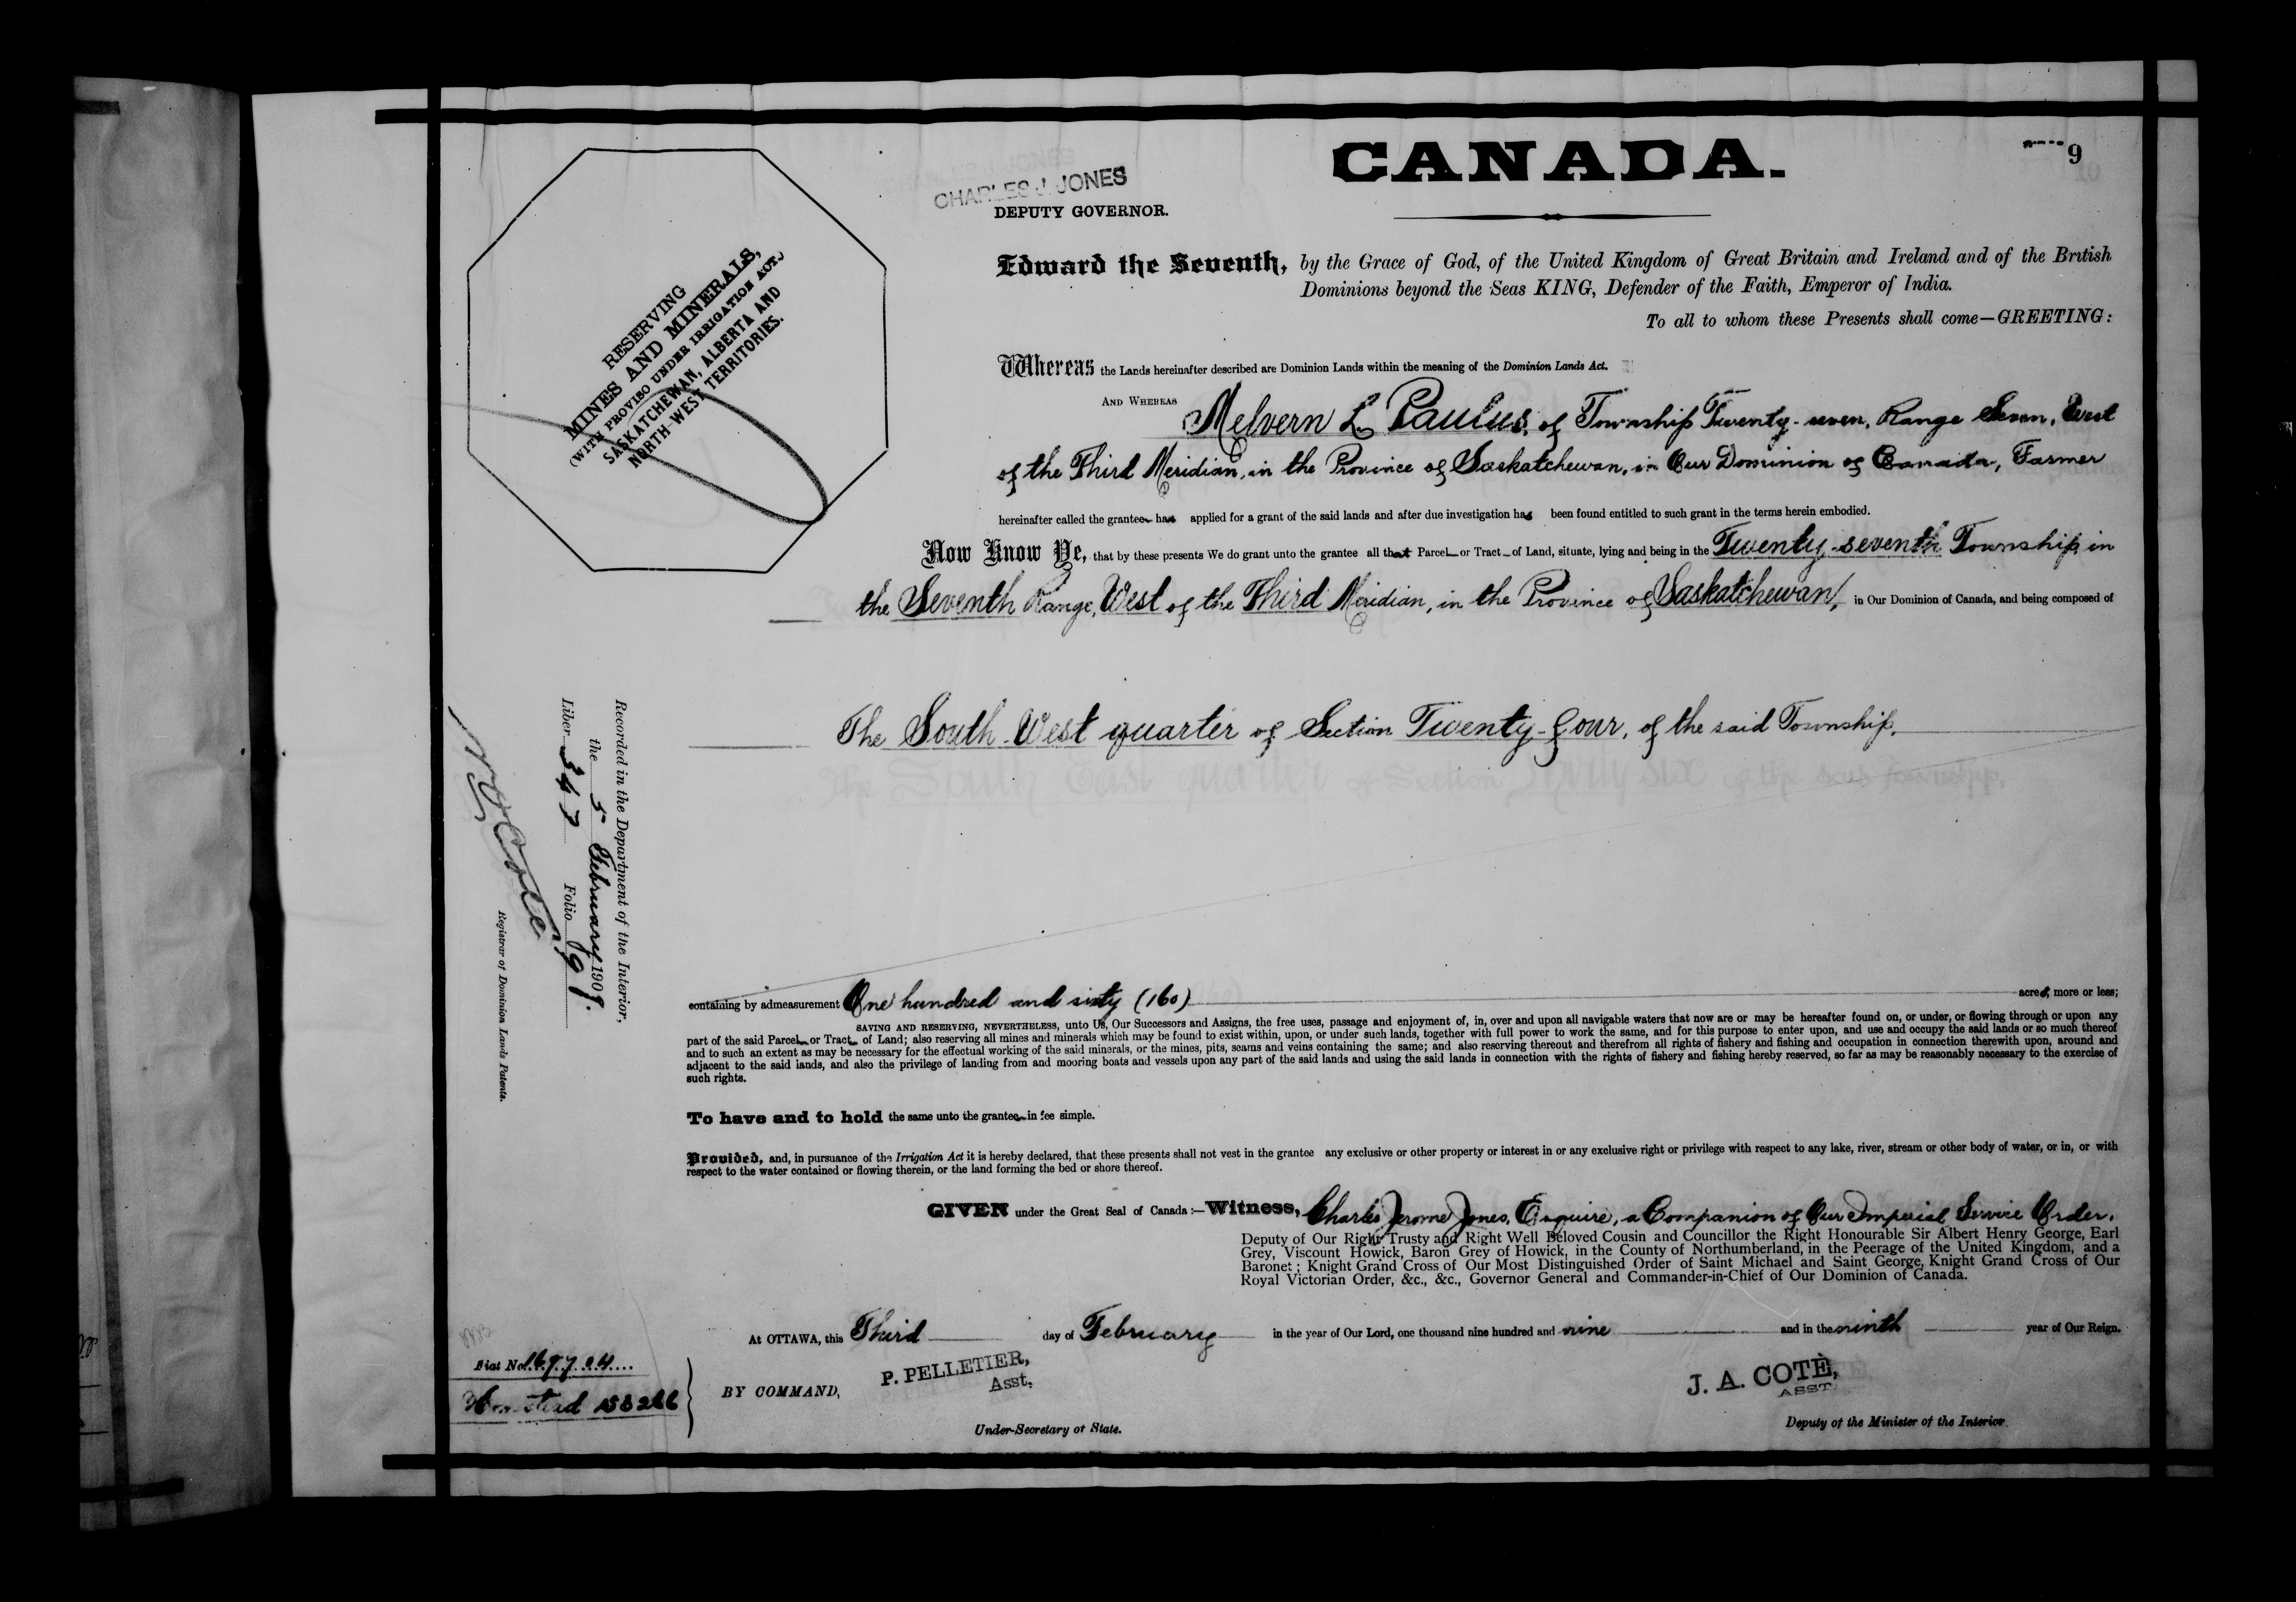 CANADA.
9
CHARLES J. JONES
DEPUTY GOVERNOR.
RESERVING
MINES AND MINERALS,
(WITH PROVISO UNDER IRRIGATION ACT.)
SASKATCHEWAN, ALBERTA AND
NORTH-WEST TERRITORIES.
Edward the Seventh, by the Grace of God, of the United Kingdom of Great Britain and Ireland and of the British
Dominions beyond the Seas KING, Defender of the Faith, Emperor of India.
To all to whom these Presents shall come—GREETING:
Whereas the Lands hereinafter described are Dominion Lands within the meaning of the Dominion Lands Act.
AND WHEREAS Melvern L. Paulus, of Township Twenty-seven, Range Seven, West
of the Third Meridian, in the Province of Saskatchewan, in Our Dominion of Canada, Farmer
hereinafter called the grantee has applied for a grant of the said lands and after due investigation has been found entitled to such grant in the terms herein embodied.
Now Know Ye, that by these presents We do grant unto the grantee all that Parcel or Tract of Land, situate, lying and being in the Twenty-seventh Township, in
the Seventh Range, West of the Third Meridian, in the Province of Saskatchewan, in Our Dominion of Canada, and being composed of
The South West quarter of Section Twenty-four, of the said Township.
Recorded in the Department of the Interior,
the 5 February 1909.
Liber 347 Folio 9
Registrar of Dominion Lands Patents.
containing by admeasurement One hundred and sixty (160) acres, more or less;
SAVING AND RESERVING, NEVERTHELESS, unto Us, Our Successors and Assigns, the free uses, passage and enjoyment of, in, over and upon all navigable waters that now are or may be hereafter found on, or under, or flowing through or upon any
part of the said Parcel or Tract of Land; also reserving all mines and minerals which may be found to exist within, upon, or under such lands, together with full power to work the same, and for this purpose to enter upon, and use and occupy the said lands or so much thereof
and to such an extent as may be necessary for the effectual working of the said minerals, or the mines, pits, seams and veins containing the same; and also reserving thereout and therefrom all rights of fishery and fishing and occupation in connection therewith upon, around and
adjacent to the said lands, and also the privilege of landing from and mooring boats and vessels upon any part of the said lands and using the said lands in connection with the rights of fishery and fishing hereby reserved, so far as may be reasonably necessary to the exercise of
such rights.
To have and to hold the same unto the grantee in fee simple.
Provided, and, in pursuance of the Irrigation Act it is hereby declared, that these presents shall not vest in the grantee any exclusive or other property or interest in or any exclusive right or privilege with respect to any lake, river, stream or other body of water, or in, or with
respect to the water contained or flowing therein, or the land forming the bed or shore thereof.
GIVEN under the Great Seal of Canada:—Witness, Charles Jerome Jones, Esquire, a Companion of Our Imperial Service Order,
Deputy of Our Right Trusty and Right Well Beloved Cousin and Councillor the Right Honourable Sir Albert Henry George, Earl
Grey, Viscount Howick, Baron Grey of Howick, in the County of Northumberland, in the Peerage of the United Kingdom, and a
Baronet; Knight Grand Cross of Our Most Distinguished Order of Saint Michael and Saint George, Knight Grand Cross of Our
Royal Victorian Order, &c., &c., Governor General and Commander-in-Chief of Our Dominion of Canada.
At OTTAWA, this Third day of February in the year of Our Lord, one thousand nine hundred and nine and in the ninth year of Our Reign.
Fiat No. 169704
Homestead
BY COMMAND,
P. PELLETIER,
Asst.
Under-Secretary of State.
J. A. COTÈ,
ASST
Deputy of the Minister of the Interior.